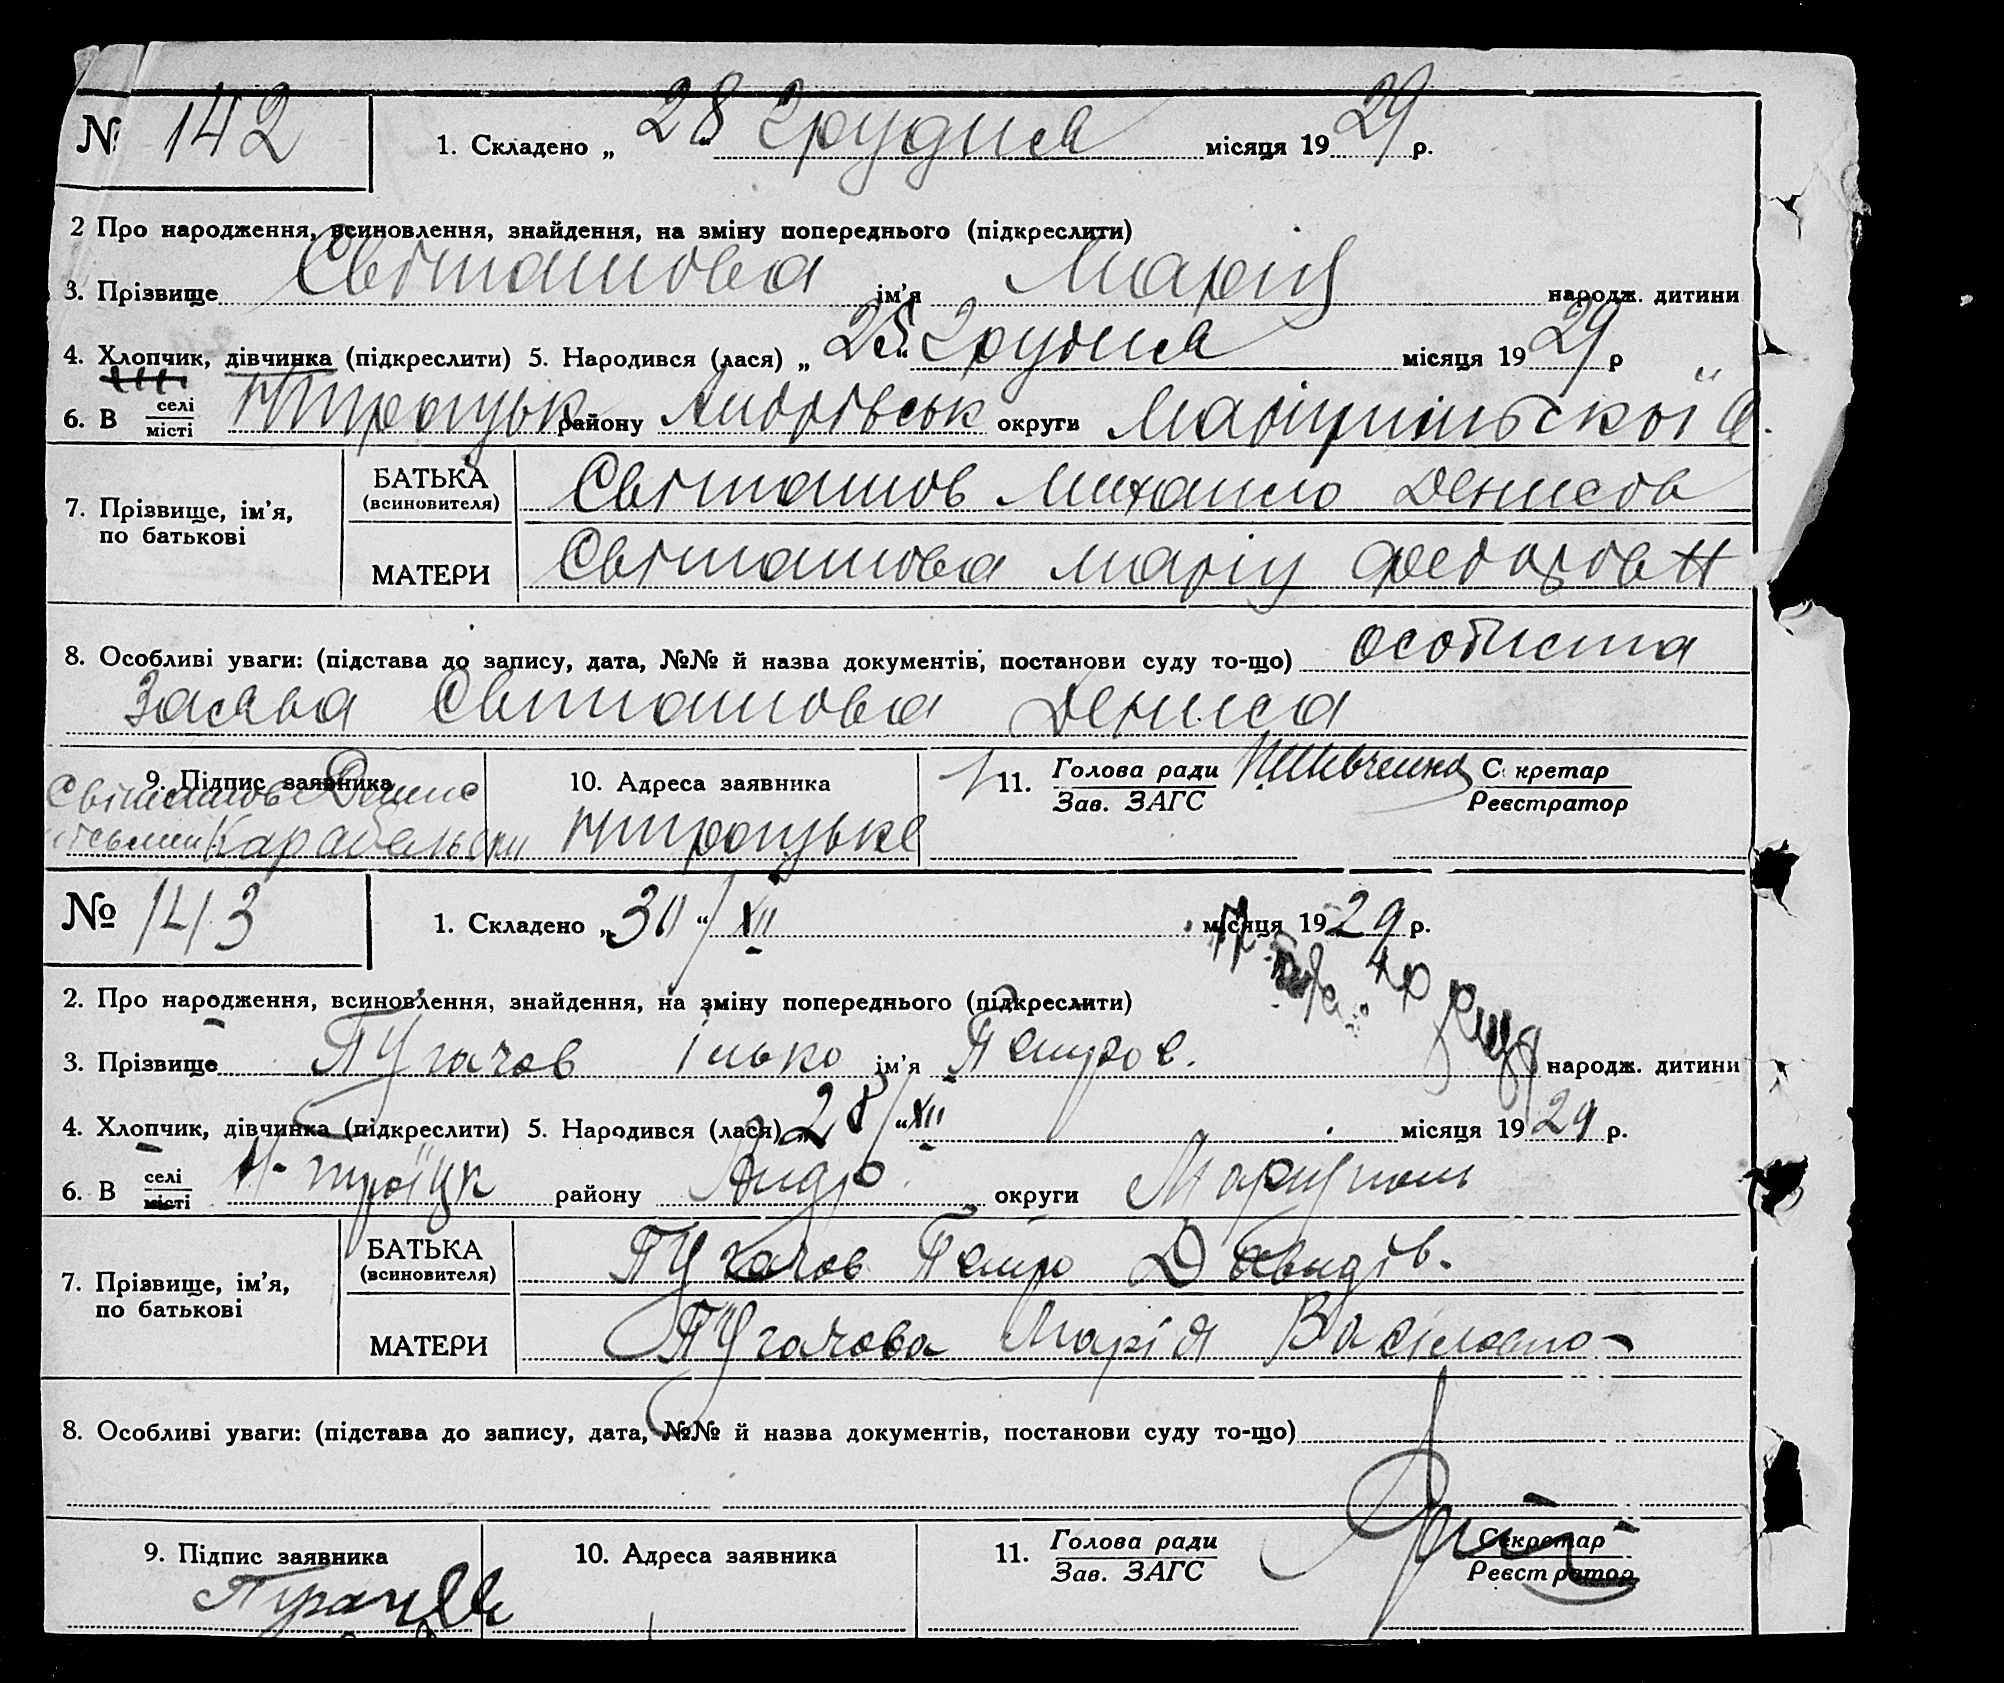 № 142 1. Складено „ 28 " Грудня місяця 1929 р.
2 Про народження, всиновлення, знайдення, на зміну попереднього (підкреслити)
3. Прізвище Світашова ім'я Марія народж. дитини
4. Хлопчик, дівчинка (підкреслити) 5. Народився (лася) „ 25 " Грудня місяця 1929 р
6. В селі/місті району Андрієвськ округи Маріупільської О.
7. Прізвище, ім'я, по батькові
БАТЬКА (всиновителя) Світашов Михаило Денисов
МАТЕРИ Світашова Марія Федоровн
8. Особливі уваги: (підстава до запису, дата, №№ й назва документів, постанови суду то-що) особиста
Заява Світашова Дениса
9. Підпис заявника 10. Адреса заявника 11. Голова ради / Зав. ЗАГС Секретар / Реєстратор
Світашов Денис
Карабельски
№ 143 1. Складено „ 30/XII місяця 1929 р.
2. Про народження, всиновлення, знайдення, на зміну попереднього (підкреслити)
3. Прізвище Пугачов Ілько ім'я Петров. народж. дитини
4. Хлопчик, дівчинка (підкреслити) 5. Народився (лася) „ 28/XII місяця 1929 р.
6. В селі/місті Н-Троїцк району Андр. округи Мариуполь
7. Прізвище, ім'я, по батькові
БАТЬКА (всиновителя) Пугачов Петро Давидів.
МАТЕРИ Пугачова Марія
8. Особливі уваги: (підстава до запису, дата, №№ й назва документів, постанови суду то-що)
9. Підпис заявника 10. Адреса заявника 11. Голова ради / Зав. ЗАГС Секретар / Реєстратор